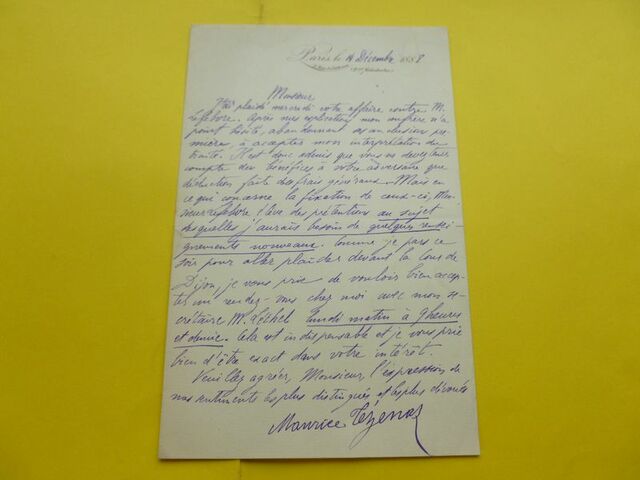 Paris, le 14 Décembre 1888
Monsieur
J'ai plaidé mercredi votre affaire contre M.
Lefebvre. Après mes explications mon confrère n'a
point hésité, abandonnant ses conclusions pre-
mières, à accepter mon interprétation du
traité. Il est donc admis que vous ne devez tenir
compte des bénéfices à votre adversaire que
déduction faite des frais généraux. Mais en
ce qui concerne la fixation de ceux-ci, Mon-
sieur Lefebvre élève des prétentions au sujet
desquelles j'aurais besoin de quelques rensei-
gnements nouveaux. Comme je pars ce
soir pour aller plaider devant la Cour de
Dijon, je vous prie de vouloir bien accep-
ter un rendez-vous chez moi avec mon se-
crétaire M. lundi matin à 9 heures
et demie. Cela est indispensable et je vous prie
bien d'être exact dans votre intérêt.
Veuillez agréer, Monsieur, l'expression de
mes sentiments les plus distingués et les plus dévoués
Maurice Tézenas